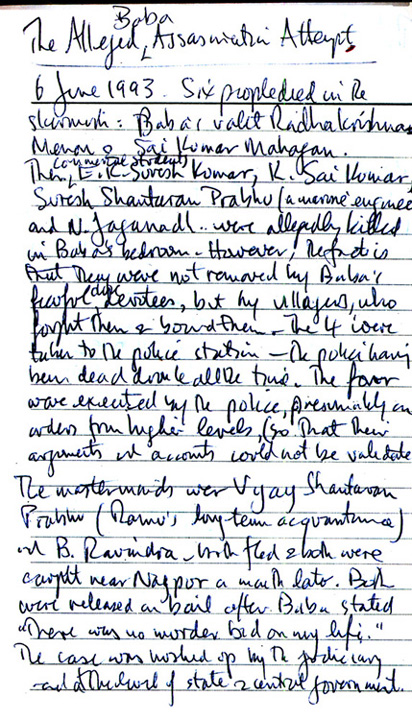 The Alleged Baba Assassination Attempt
6 June 1993. Six people died in the
skirmish: Baba's valet Radhakrishnan
Menon & Sai Kumar Mahajan.
Then, (commercial students) E.K. Suresh Kumar, K. Sai Kumar,
Suresh Shantaran Prabhu (a marine engineer
and N. Jaganadh.. were allegedly killed
in Baba's bedroom. However, the fact is
that they were not removed by Baba's
fearful close devotees, but by villagers, who
fought them & bound them. The 4 were
taken to the police station – the police having
been dead drunk all the time. The four
were executed by the police, presumably on
orders from higher levels, (so that their
arguments and accounts could not be validate
The masterminds were Vijay Shantaran
Prabhu (Ramu's long-term acquaintance)
and B. Ravindra – both fled & both were
caught near Nagpur a month later. Both
were released on bail after Baba stated
"There was no murder bid on my life."
The case was hushed up by the judiciary
and at the level of state & central government.